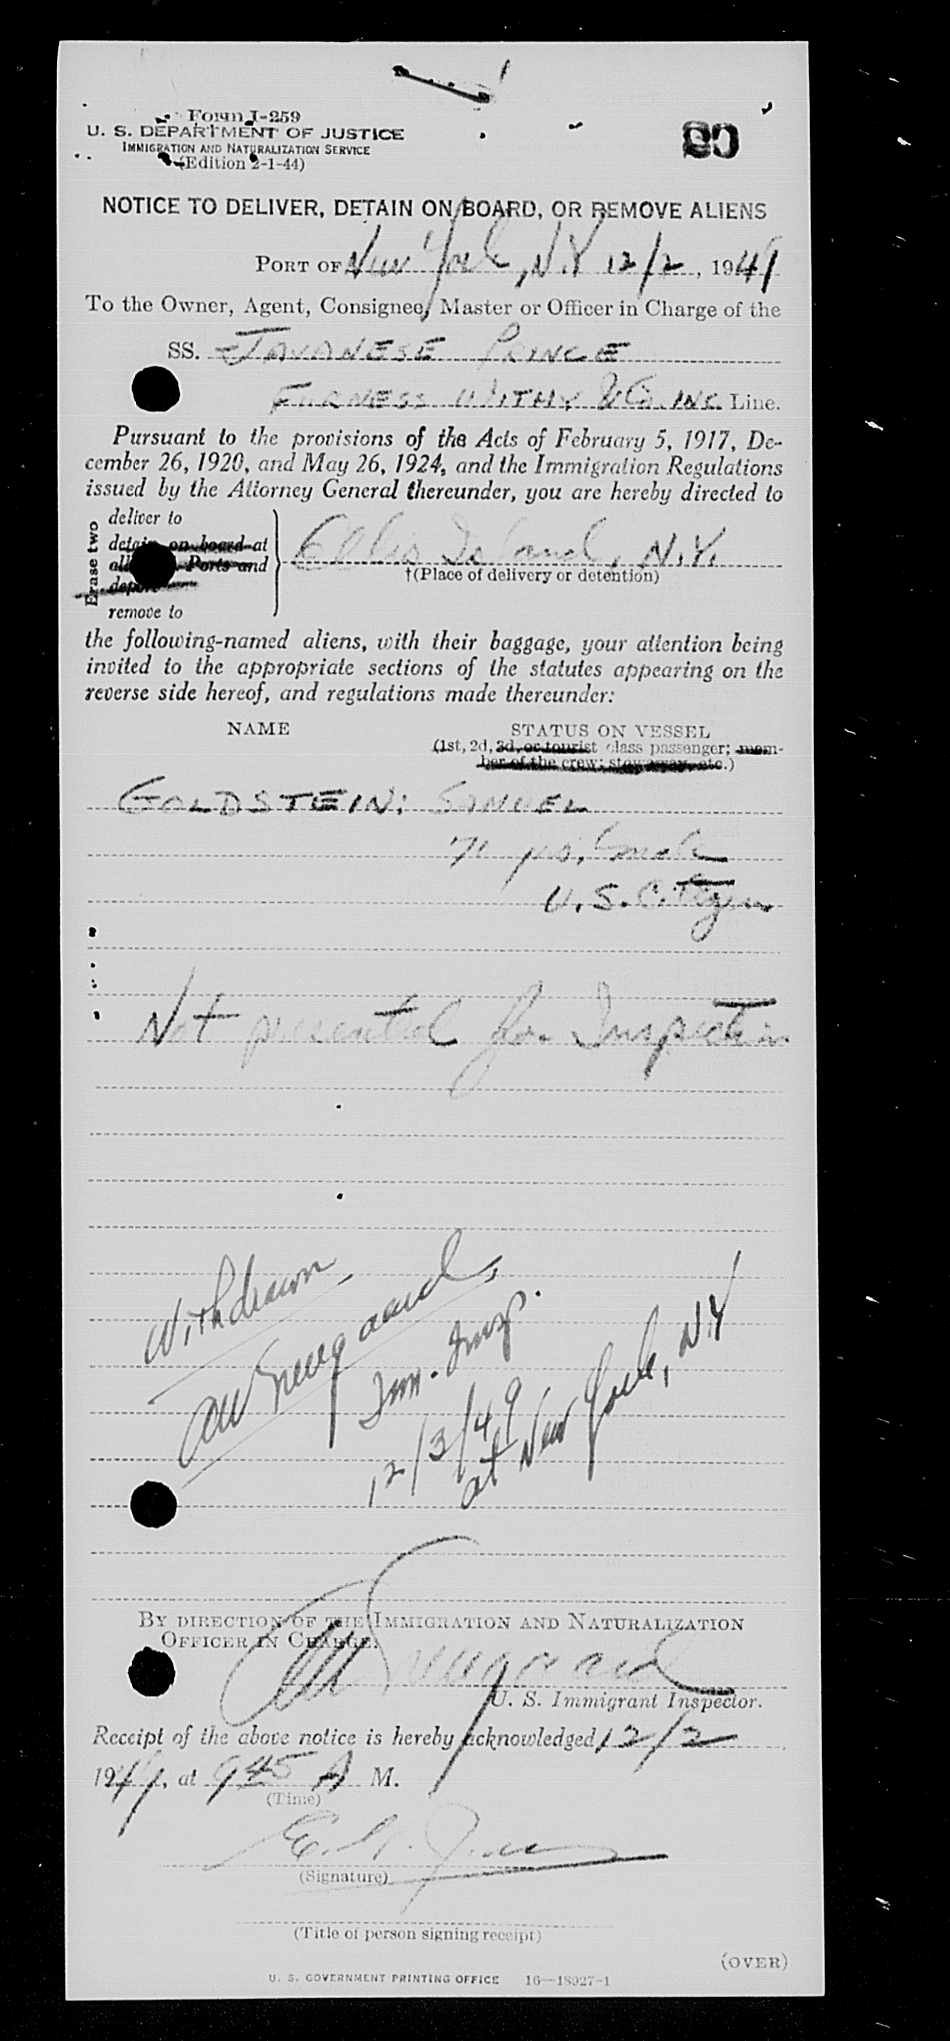 Form I-259
U. S. DEPARTMENT OF JUSTICE
IMMIGRATION AND NATURALIZATION SERVICE
(Edition 2-1-44)
80
NOTICE TO DELIVER, DETAIN ON BOARD, OR REMOVE ALIENS
PORT OF New York, N.Y. 12/2, 1949
To the Owner, Agent, Consignee, Master or Officer in Charge of the
SS. JAVANESE PRINCE
FURNESS WITHY & Co. INC. Line.
Pursuant to the provisions of the Acts of February 5, 1917, De-
cember 26, 1920, and May 26, 1924, and the Immigration Regulations
issued by the Attorney General thereunder, you are hereby directed to
Erase two
deliver to
detain on board at
all Ports and
deport
remove to
Ellis Island, N.Y.
†(Place of delivery or detention)
the following-named aliens, with their baggage, your attention being
invited to the appropriate sections of the statutes appearing on the
reverse side hereof, and regulations made thereunder:
NAME
STATUS ON VESSEL
(1st, 2d, 3d, or tourist class passenger; mem-
ber of the crew; stowaway, etc.)
GOLDSTEIN: SAMUEL
71 yrs, male
U.S. Citizen
Not presented for Inspection
Withdrawn
Imm. Insp.
12/3/49
at New York, N.Y
BY DIRECTION OF THE IMMIGRATION AND NATURALIZATION
OFFICER IN CHARGE.
U. S. Immigrant Inspector.
Receipt of the above notice is hereby acknowledged 12/2
1949, at 9 45 A M.
(Time)
(Signature)
(Title of person signing receipt)
(OVER)
U. S. GOVERNMENT PRINTING OFFICE 16—18027-1